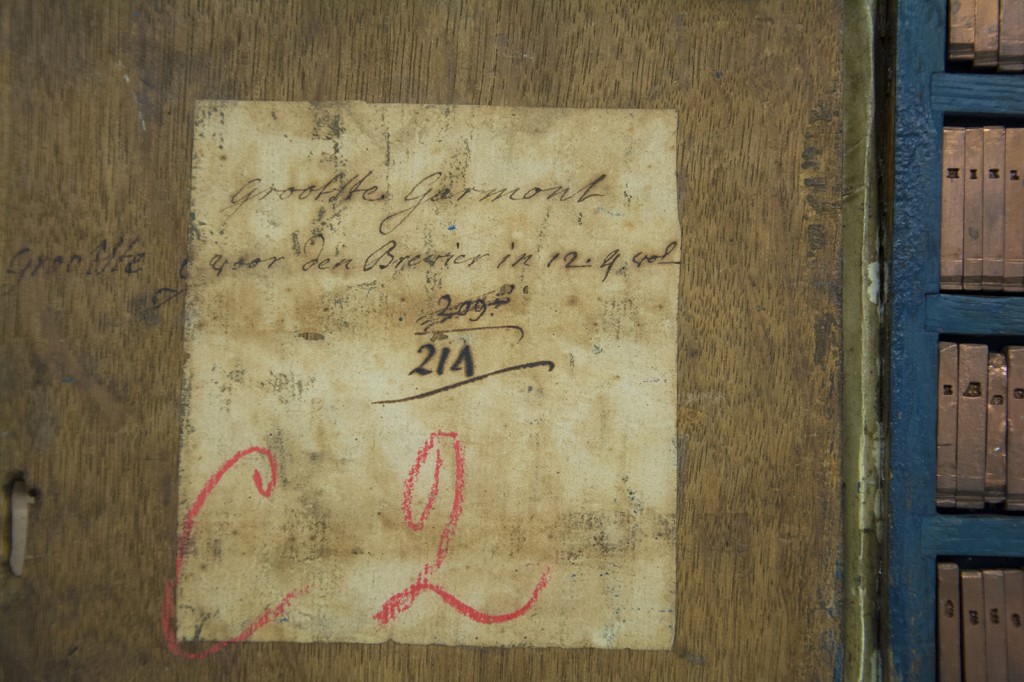 Grootste Garmont
Grootste voor den Brevier in 12. g. vol
209
214
C 2